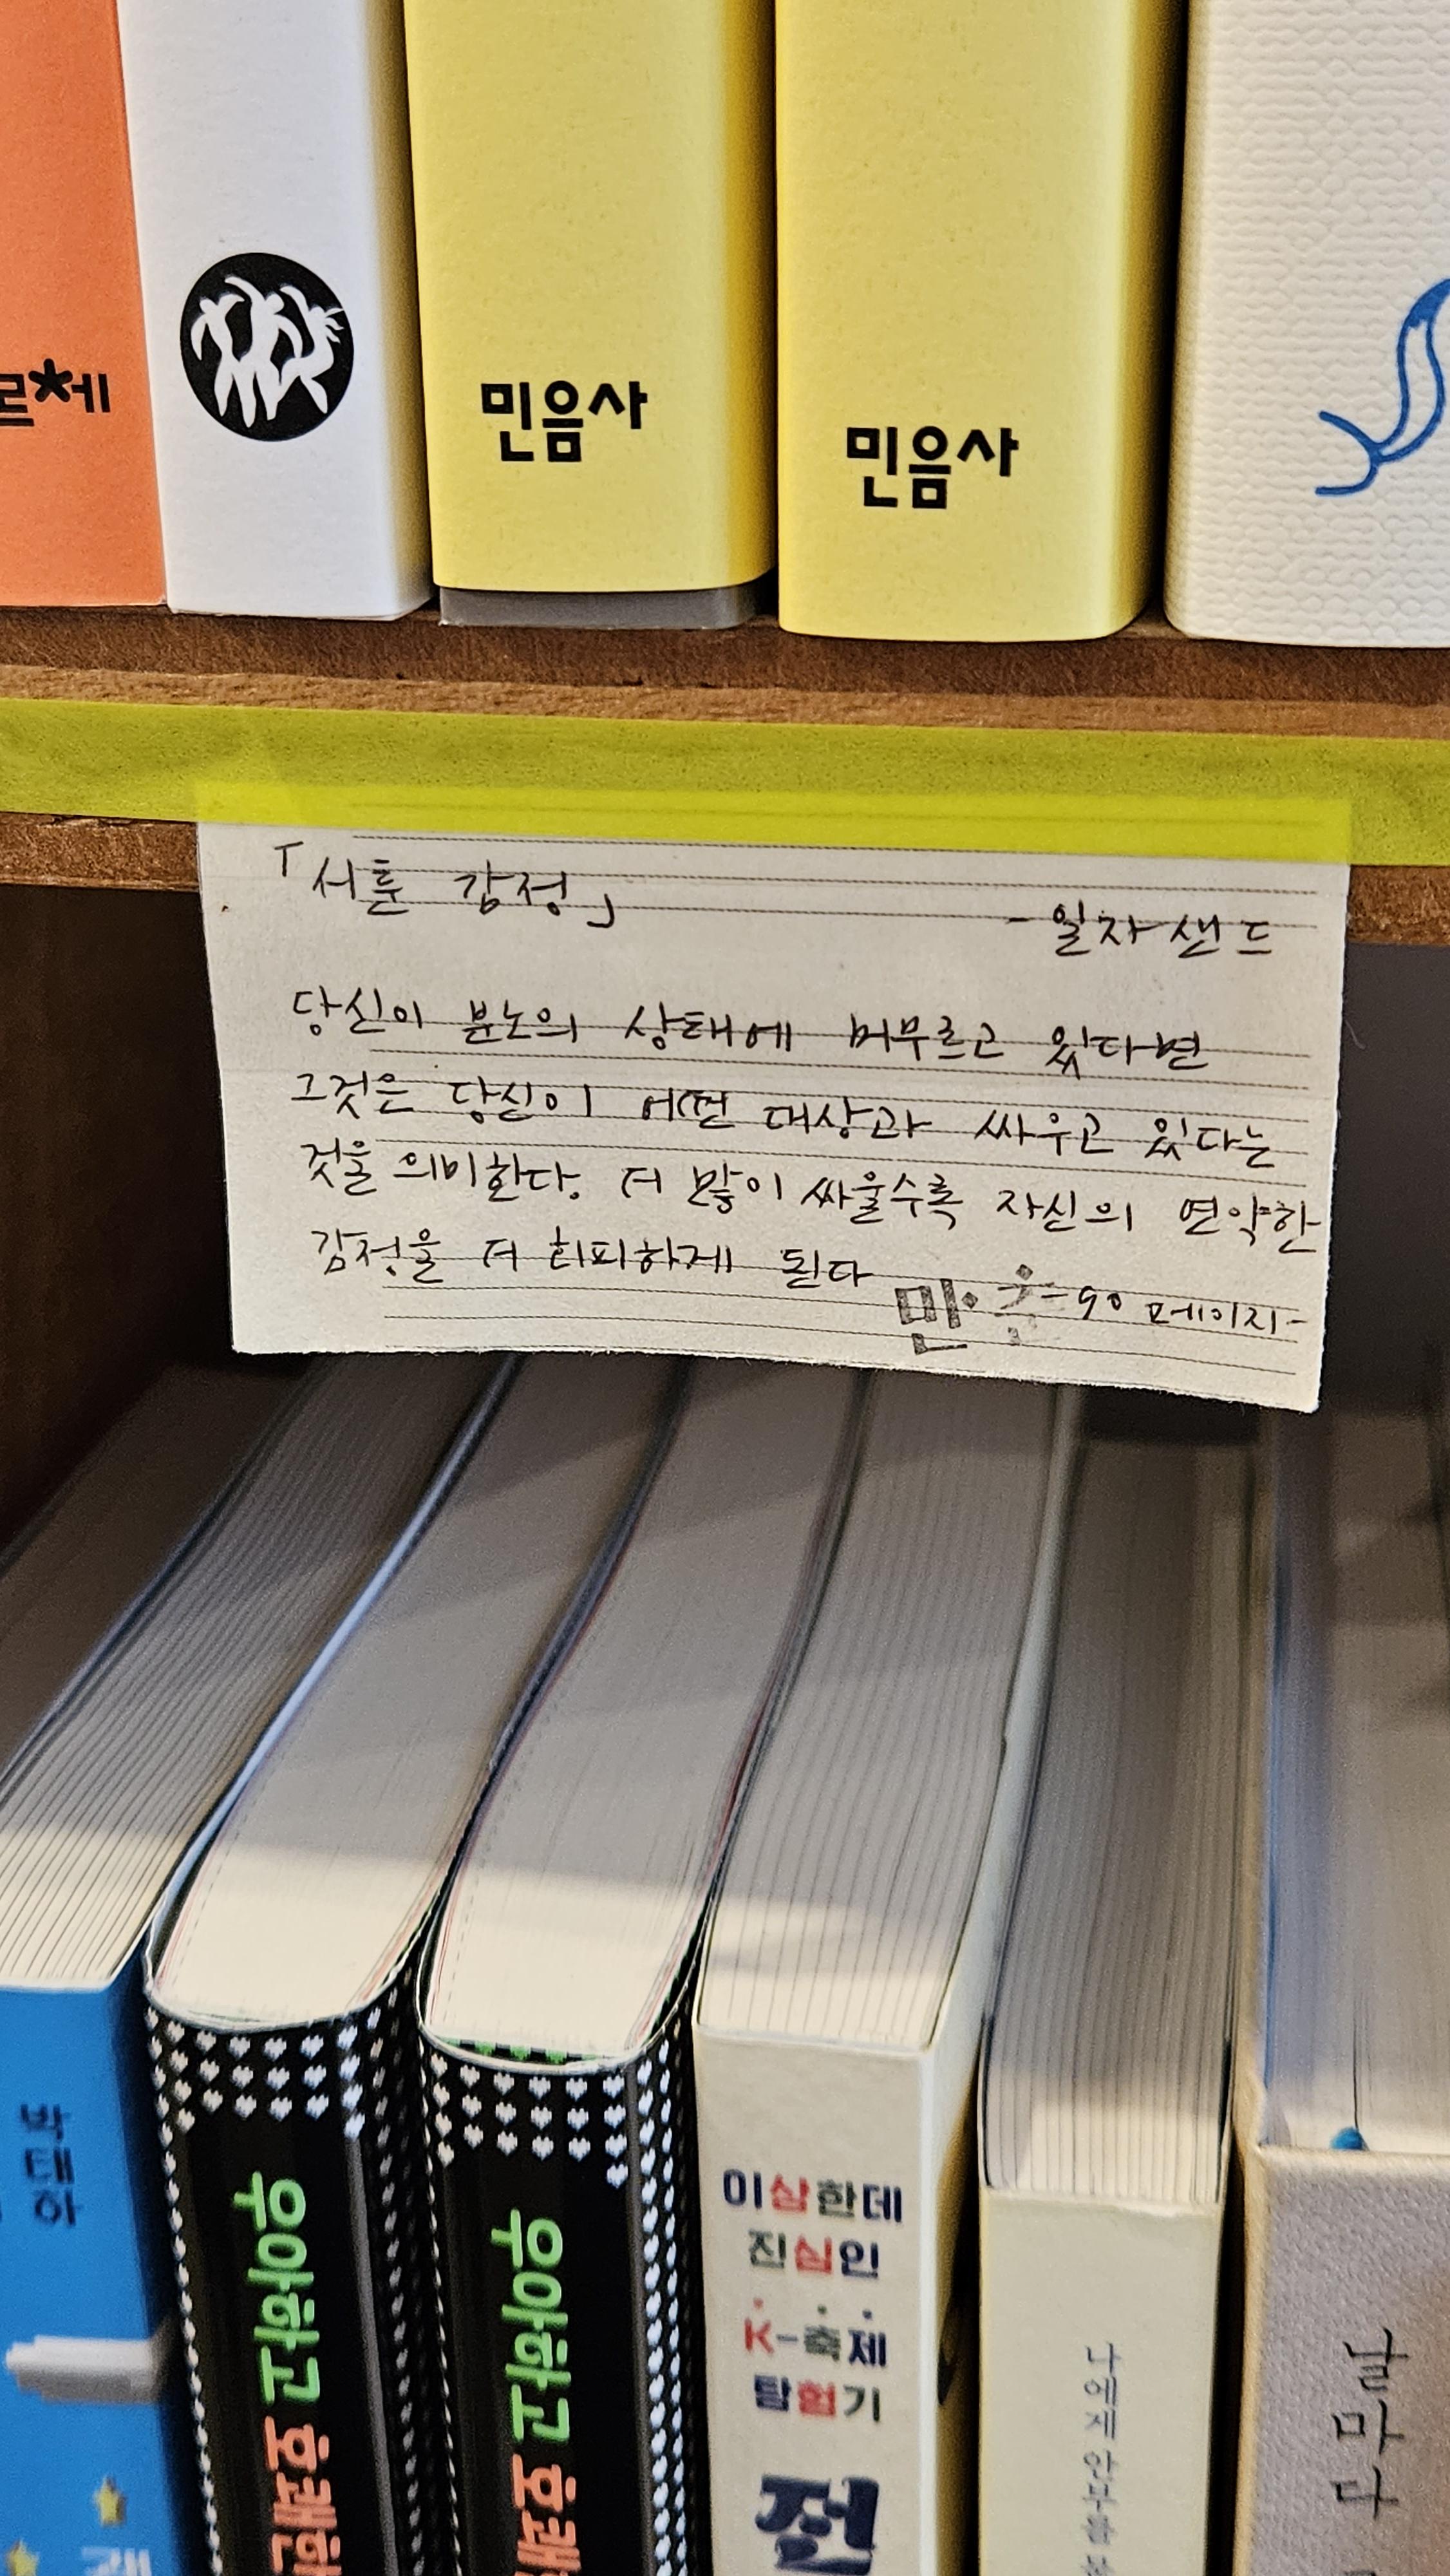 르*제
민음사
민음사
「서툰 감정」
- 일자 샌드
당신이 분노의 상태에 머무르고 있다면
그것은 당신이 어떤 대상과 싸우고 있다는
것을 의미한다. 더 많이 싸울수록 자신의 연약한
감정을 더 회피하게 된다
민·음
- 90 페이지 -
박태하
우아하고 호쾌한
우아하고 호쾌한
이상한데
진심인
K-축제
탐험기
전
나에게 안부를
날마다